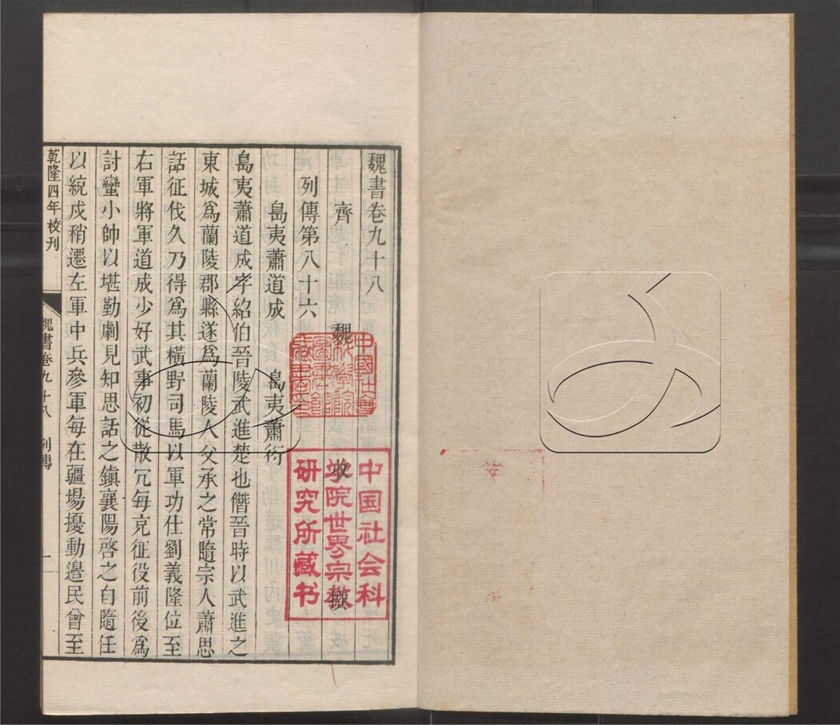 魏書卷九十八
齊 魏 收 撰
列傳第八十六
島夷蕭道成 島夷蕭衍
島夷蕭道成字紹伯晉陵武進楚也僭晉時以武進之
東城為蘭陵郡縣遂為蘭陵人父承之常隨宗人蕭思
話征伐久乃得為其橫野司馬以軍功仕劉義隆位至
右軍將軍道成少好武事初從散冗每充征役前後為
討蠻小帥以堪勤劇見知思話之鎮襄陽啓之自隨任
以統戍稍遷左軍中兵參軍每在疆場擾動邊民曾至
乾隆四年校刊
魏書卷九十八 列傳
一
中國社會
科學院
圖書館
藏書印
中国社会科
学院世界宗教
研究所藏书